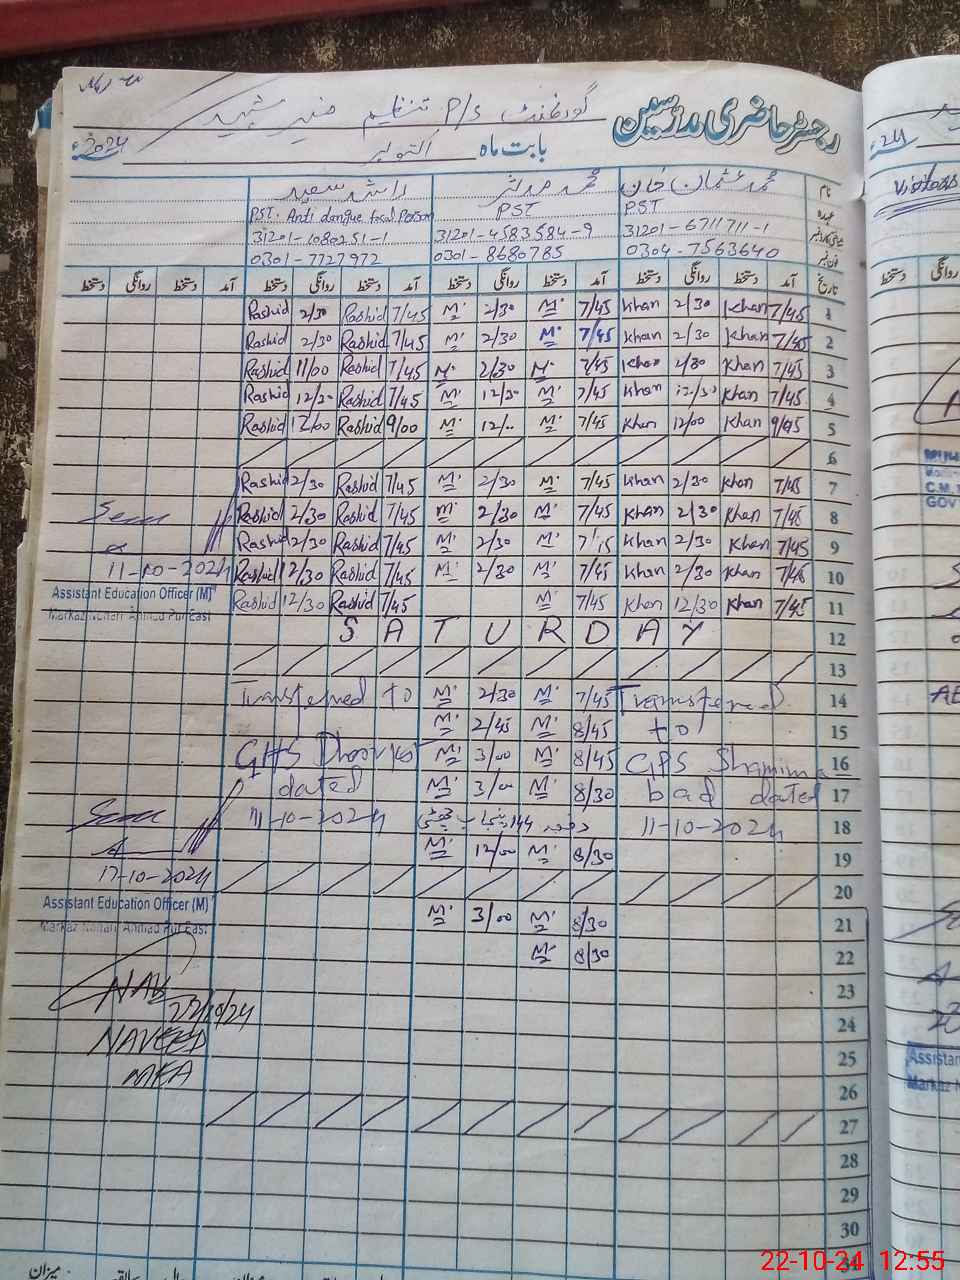 رجسٹر حاضری مدرسین
گورنمنٹ P/S تنظیم
بابت ماہ اکتوبر 2024ء
نام محمد عثمان خان محمد مدثر راشد سعید
عہدہ PST PST PST. Anti dengue focal Person
31201-6711711-1 31201-4583584-9 31201-1080251-1
0304-7563640 0301-8680785 0301-7727972
تاریخ آمد دستخط روانگی دستخط آمد دستخط روانگی دستخط آمد دستخط روانگی دستخط آمد دستخط روانگی دستخط
1 7/45 Khan 2/30 Khan 7/45 M. 2/30 M. 7/45 Rashid 2/30 Rashid
2 7/45 Khan 2/30 Khan 7/45 M. 2/30 M. 7/45 Rashid 2/30 Rashid
3 7/45 Khan 2/30 Khan 7/45 M. 2/30 M. 7/45 Rashid 11/00 Rashid
4 7/45 Khan 12/30 Khan 7/45 M. 12/30 M. 7/45 Rashid 12/30 Rashid
5 Khan 12/00 Khan 7/45 M. 12/.. M. 9/00 Rashid 12/00 Rashid
6
7 7/45 Khan 2/30 Khan 7/45 M. 2/30 M. 7/45 Rashid 2/30 Rashid
8 7/45 Khan 2/30 Khan 7/45 M. 2/30 M. 7/45 Rashid 2/30 Rashid
9 7/45 Khan 2/30 Khan M. 2/30 M. 7/45 Rashid 2/30 Rashid
10 7/45 Khan 2/30 Khan 7/45 M. 2/30 M. 7/45 Rashid 2/30 Rashid 11-10-2024
11 7/45 Khan 12/30 Khan 7/45 M. 7/45 Rashid 12/30 Rashid
Assistant Education Officer (M)
Markaz Ahmad Pur East
12 SATURDAY
13
14 Transferred 7/45 M. 2/30 M. Transferred to
15 to 8/45 M. 2/45 M.
16 GPS Shamima 8/45 M. 3/00 M. GHS
17 bad dated 8/30 M. 3/00 M. dated
18 11-10-2024 دفعہ 144 11-10-2024
19 8/30 M. 12/00 M.
20 17-10-2024
Assistant Education Officer (M)
Markaz Ahmad Pur East
21 8/30 M. 3/00 M.
22 8/30 M.
23
24 22/10/24
25 NAVEED
26 MEA
27
28
29
30
31
میزان
Visitors
C.M.
GOV
Assistan
22-10-24 12:55